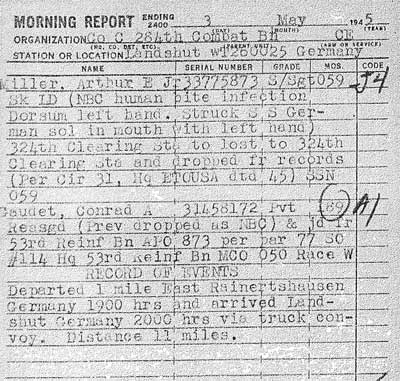 MORNING REPORT ENDING 2400 3 May 1945
(DAY) (MONTH) (YEAR)
ORGANIZATION Co C 284th Combat Bn CE
(NO. CO. DET. ETC.) (PARENT UNIT) (ARM OR SERVICE)
STATION OR LOCATION Landshut WT260025 Germany
NAME SERIAL NUMBER GRADE MOS. CODE
Miller, Arthur E Jr 33775873 S/Sgt 059 J4
Sk LD (NBC human bite infection
Dorsum left hand. Struck S S Ger-
man sol in mouth with left hand)
324th Clearing Sta to lost, to 324th
Clearing Sta and dropped fr records
(Per Cir 31, Hq ETOUSA dtd 45) SSN
059
Gaudet, Conrad A 31458172 Pvt 189 A1
Reasgd (Prev dropped as NBC) & jd fr
53rd Reinf Bn APO 873 per par 77 SO
#114 Hq 53rd Reinf Bn MCO 050 Race W
RECORD OF EVENTS
Departed 1 mile East Rainertshausen
Germany 1900 hrs and arrived Land-
shut Germany 2000 hrs via truck con-
voy. Distance 11 miles.